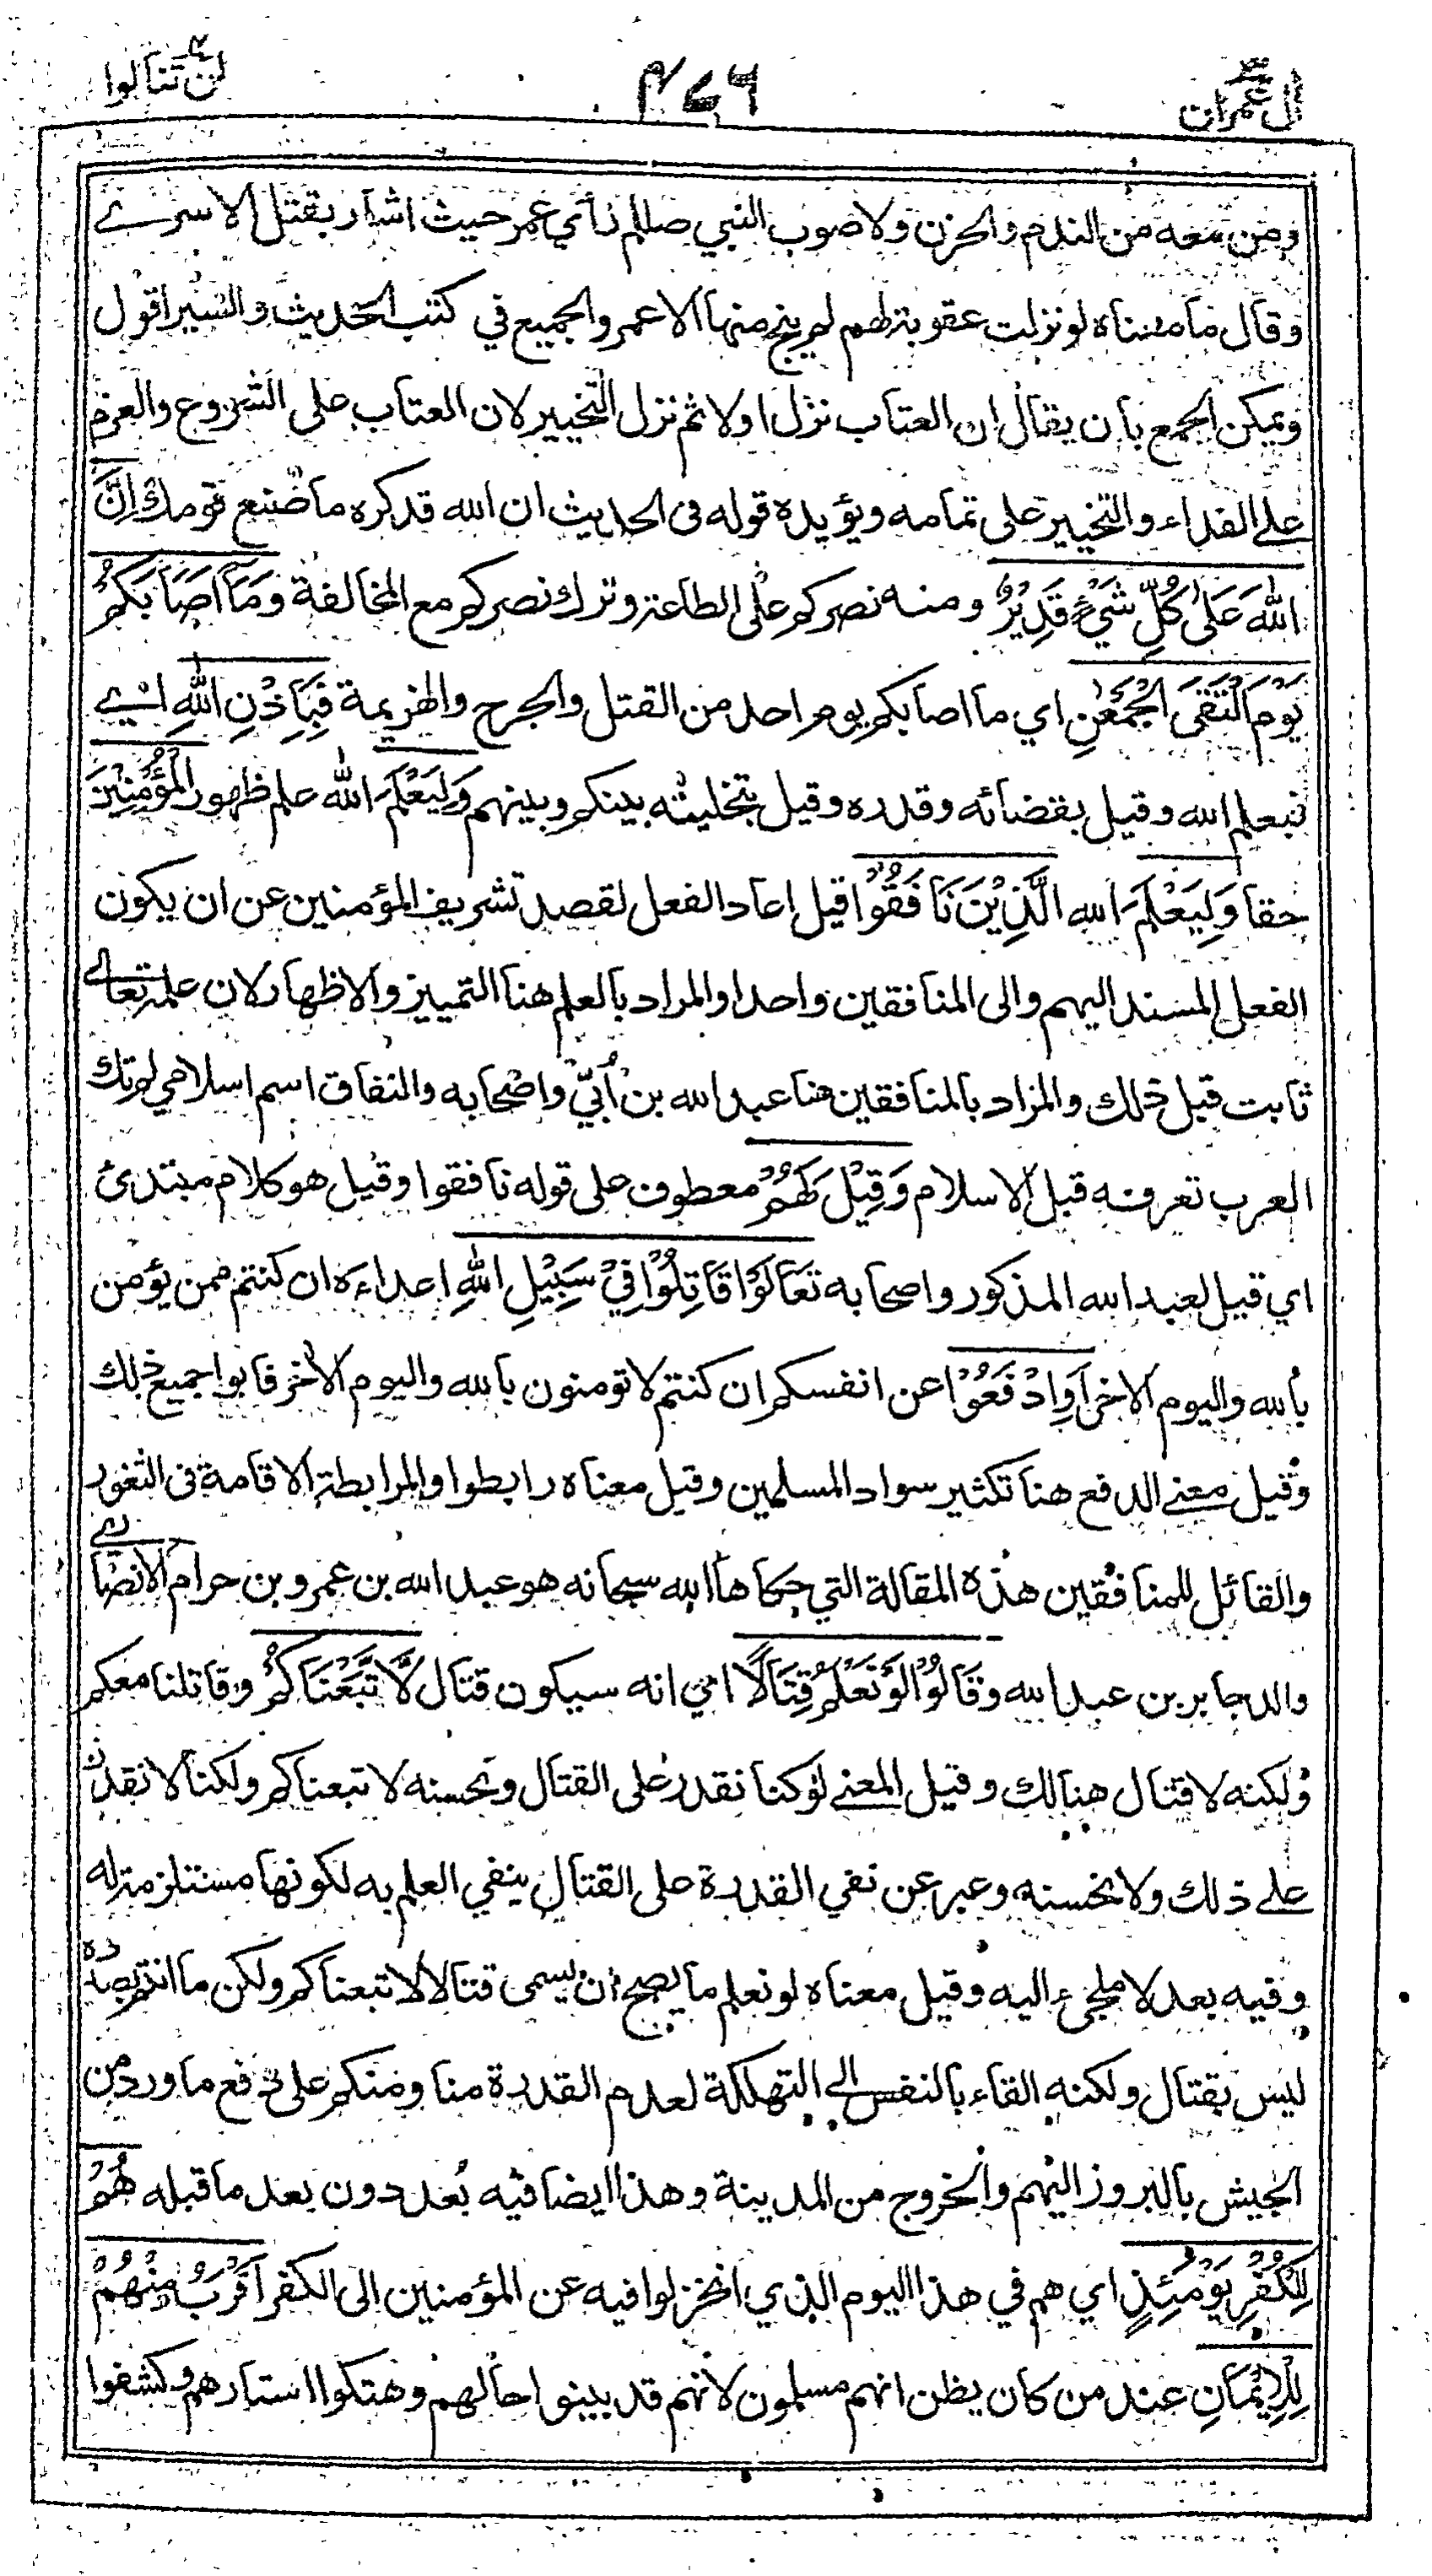 لن تنالوا ٤
ال عمران ٣
ومن معه من الندم والحزن ولا صوب النبي صللم رأي عمر حيث اشار بقتل الاسرے
وقال ما معناه لو نزلت عقوبة لهم لم ينج منها الا عمر والجميع في كتب الحديث والسير اقول
ويمكن الجمع بان يقال ان العتاب نزل اولا ثم نزل التخيير لان العتاب على الشروع والعزم
علے الفداء والتخيير على تمامه ويؤيده قوله فى الحديث ان الله قد كره ما صنع قومك اِنَّ
اللّٰهَ عَلٰى كُلِّ شَيْءٍ قَدِيْرٌ ومنه نصركم على الطاعة وترك نصركم مع المخالفة وَمَآ اَصَابَكُمْ
يَوْمَ الْتَقَى الْجَمْعٰنِ اي ما اصابكم يوم احد من القتل والجرح والهزيمة فَبِاِذْنِ اللّٰهِ اے
فبعلم الله وقيل بقضائه وقدره وقيل بتخليته بينكم وبينهم وَلِيَعْلَمَ الله علم ظهور الْمُؤْمِنِيْنَ
حقا وَلِيَعْلَمَ الله الَّذِيْنَ نَافَقُوْا قيل اعاد الفعل لقصد تشريف المؤمنين عن ان يكون
الفعل المسند اليهم والى المنافقين واحدا والمراد بالعلم هنا التمييز والاظهار لان علمه تعالے
ثابت قبل ذلك والمراد بالمنافقين هنا عبد الله بن اُبَيّ واصحابه والنفاق اسم اسلامي لم تك
العرب تعرفه قبل الاسلام وَقِيْلَ لَهُمْ معطوف على قوله نافقوا وقيل هو كلام مبتدئ
اي قيل لعبد الله المذكور واصحابه تَعَالَوْا قَاتِلُوْا فِيْ سَبِيْلِ اللّٰهِ اعداءه ان كنتم ممن يؤمن
بالله واليوم الاخر اَوِ ادْفَعُوْا عن انفسكم ان كنتم لا تومنون بالله واليوم الاخر فابوا جميع ذلك
وقيل معنے الدفع هنا تكثير سواد المسلمين وقيل معناه رابطوا والمرابطة الاقامة فى الثغور
والقائل للمنافقين هذه المقالة التي حكاها الله سبحانه هو عبد الله بن عمرو بن حرام الانصارے
والد جابر بن عبد الله وقَالُوْا لَوْ نَعْلَمُ قِتَالًا اي انه سيكون قتال لَّا تَّبَعْنَاكُمْ وقاتلنا معكم
ولكنه لا قتال هنالك وقيل المعنے لو كنا نقدر على القتال ونحسنه لا تبعناكم ولكنا لا نقدر
علے ذلك ولا نحسنه وعبر عن نفي القدرة على القتال بنفي العلم به لكونها مستلزمة له
وفيه بعد لا ملجئ اليه وقيل معناه لو نعلم ما يصح ان يسمى قتالا لا تبعناكم ولكن ما انتم بصدده
ليس بقتال ولكنه القاء بالنفس الے التهلكة لعدم القدرة منا ومنكم على دفع ما ورد من
الجيش بالبروز اليهم والخروج من المدينة وهذا ايضا فيه بُعد دون بعد ما قبله هُمْ
لِلْكُفْرِ يَوْمَئِذٍ اي هم في هذا اليوم الذي انخزلوا فيه عن المؤمنين الى الكفر اَقْرَبُ مِنْهُمْ
لِلْاِيْمَانِ عند من كان يظن انهم مسلمون لانهم قد بينوا حالهم وهتكوا استارهم وكشفوا